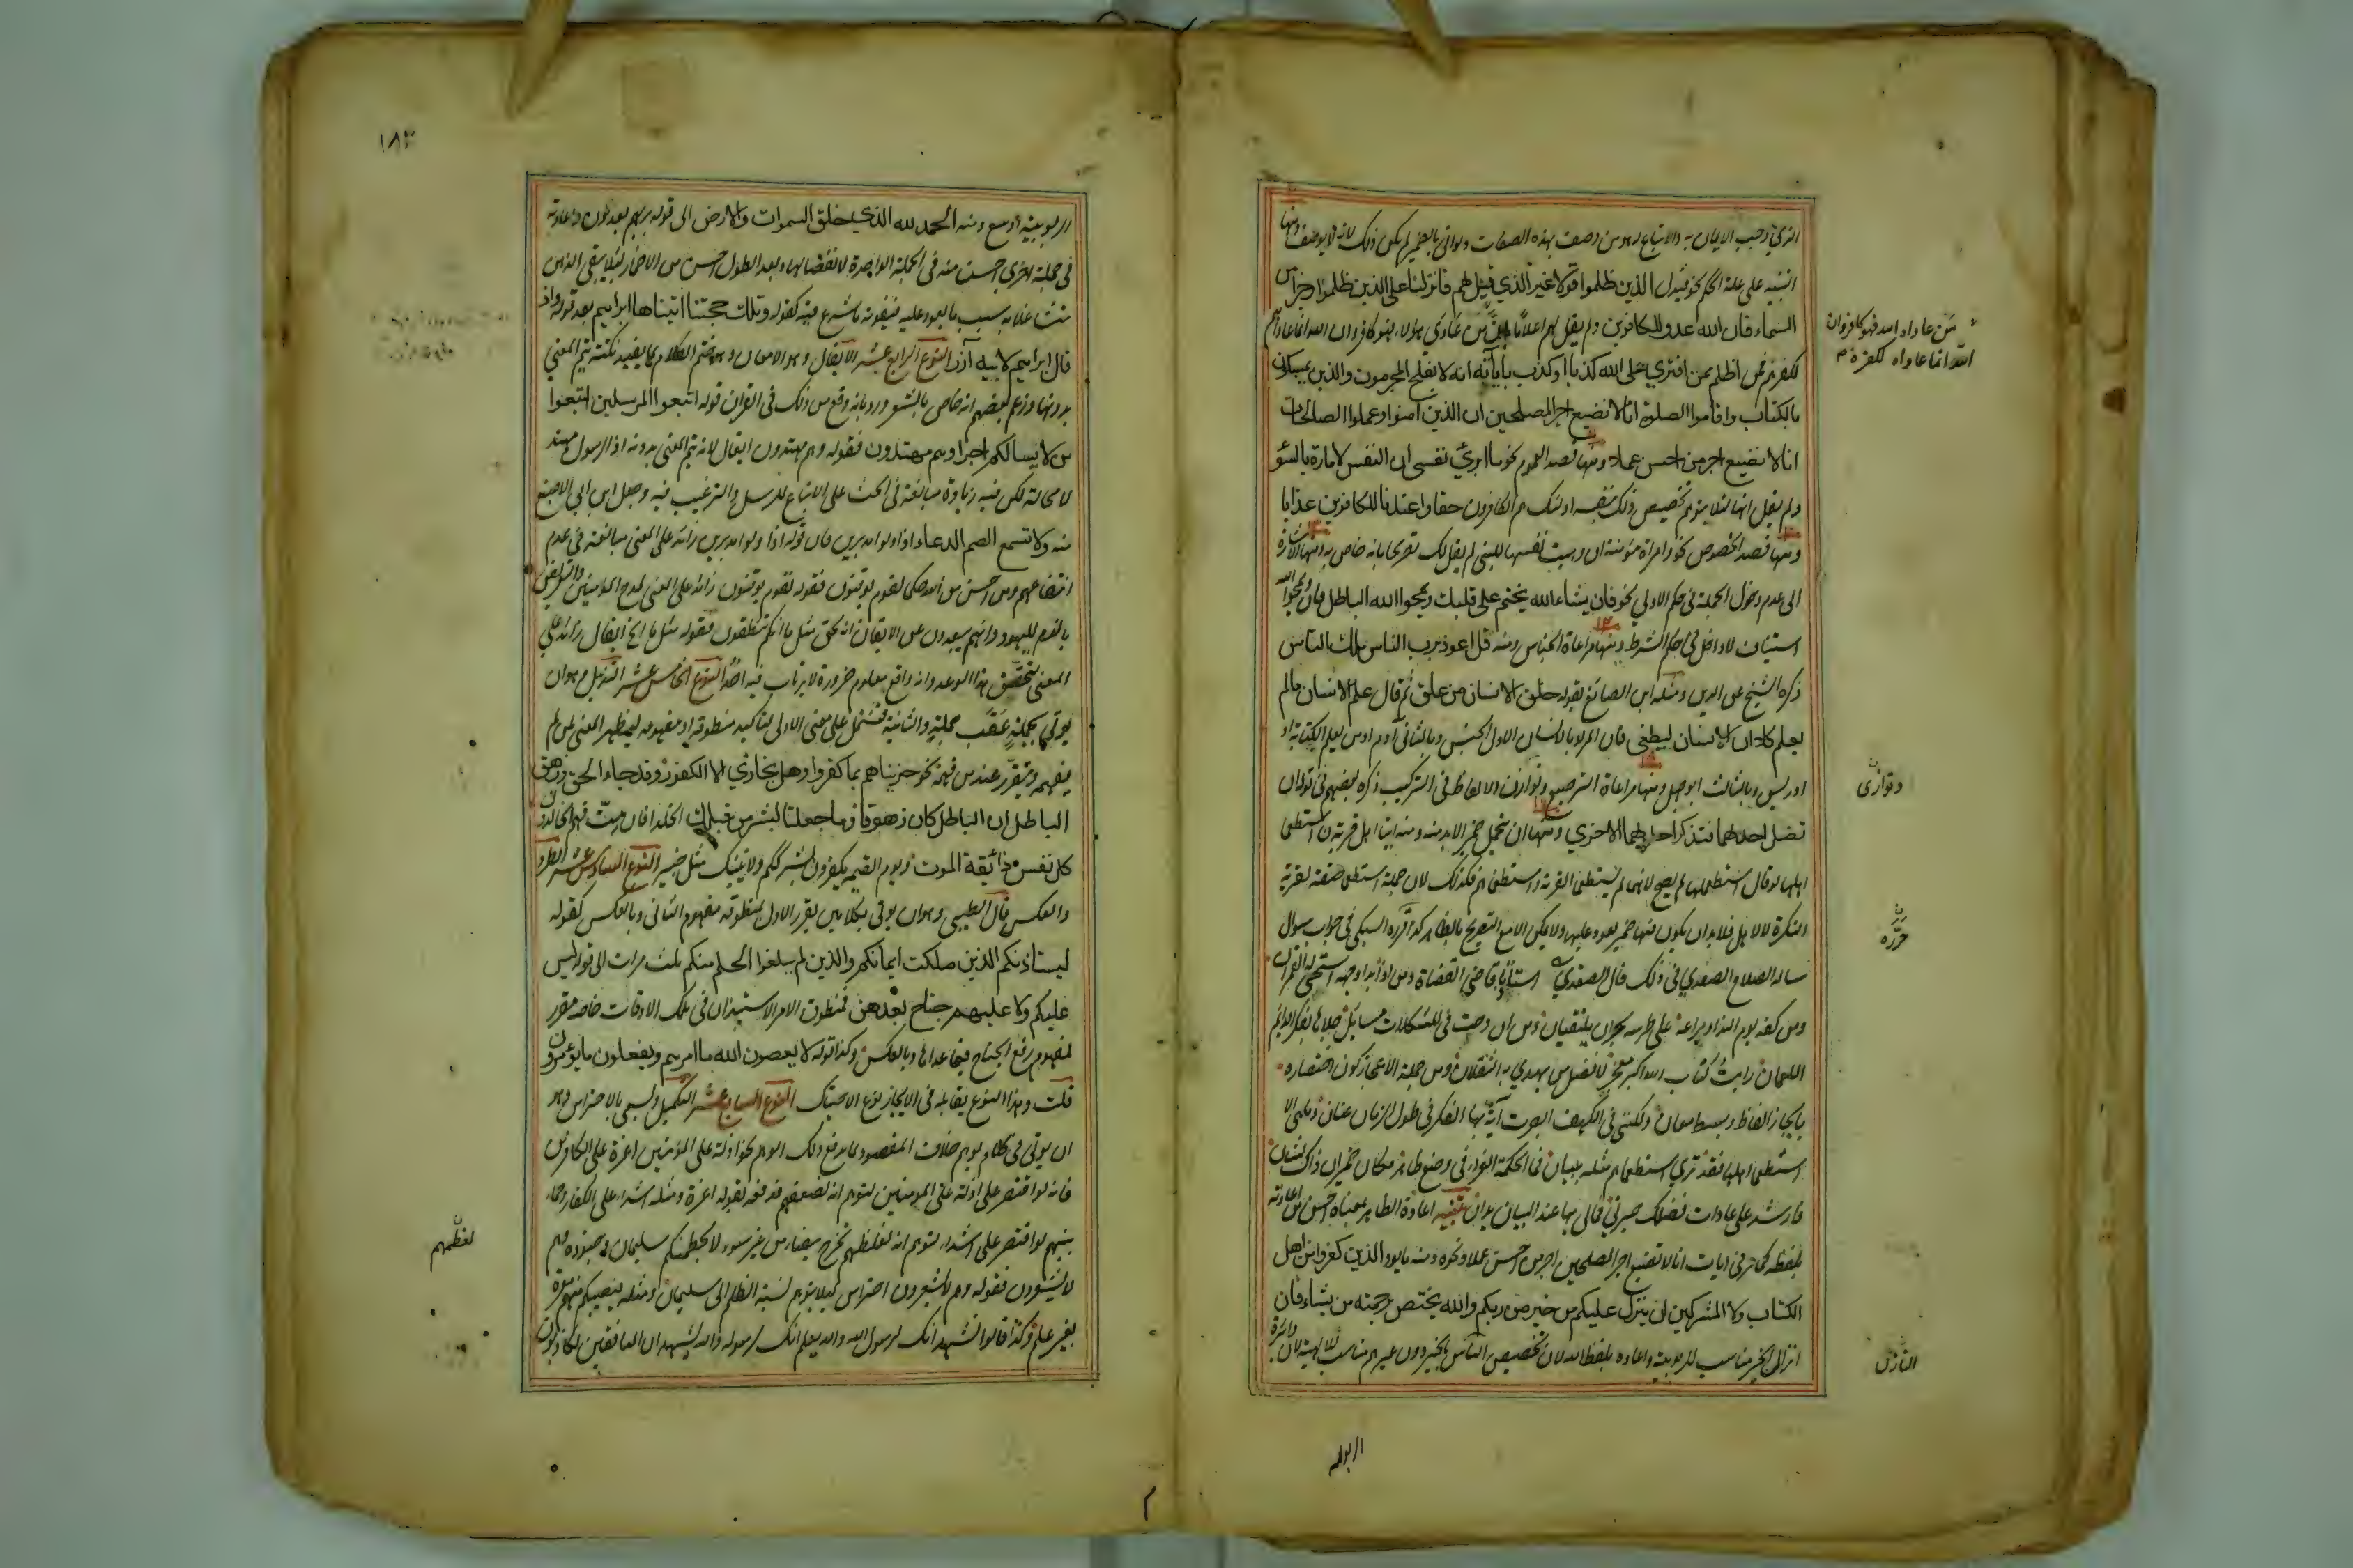 الذي وجب الايمان به والاتباع له هو من وصف بهذه الصفات ولو اتى بالضمير لم يكن ذلك لانه لا يوصف ومنها
التنبيه على علة الحكم نحو فبدل الذين ظلموا قولا غير الذي قيل لهم فانزلنا على الذين ظلموا رجزا من
السماء فان الله عدو للكافرين ولم يقل لهم اعلاما بان من عادى هؤلاء فهو كافر وان الله انما عاداهم
لكفرهم فمن اظلم ممن افترى على الله كذبا او كذب بآياته انه لا يفلح المجرمون والذين يمسكون
بالكتاب واقاموا الصلوة انا لا نضيع اجر المصلحين ان الذين امنوا وعملوا الصالحات
انا لا نضيع اجر من احسن عملا ومنها قصد العموم نحو وما ابرئ نفسي ان النفس لامارة بالسوء
ولم يقل انها لئلا يتوهم تخصيص ذلك بنفسه اولئك هم الكافرون حقا واعتدنا للكافرين عذابا
ومنها قصد الخصوص نحو وامراة مؤمنة ان وهبت نفسها للنبي لم يقل لك تصريحا بانه خاص به ومنها الاشارة
الى عدم دخول الجملة في حكم الاولى نحو فان يشاء الله يختم على قلبك ويمحوا الله الباطل فان ويمحوا الله
استئناف لا داخل في حكم الشرط ومنها مراعاة الجناس ومنه قل اعوذ برب الناس ملك الناس
ذكره الشيخ عز الدين ومثله ابن الصائغ بقوله خلق الانسان من علق ثم قال علم الانسان ما لم
يعلم كلا ان الانسان ليطغى فان المراد بالانسان الاول الجنس وبالثاني آدم او من يعلم الكتابة او
ادريس وبالثالث ابو جهل ومنها مراعاة الترصيع وتوازن الالفاظ في التركيب ذكره بعضهم في قوله ان
تضل احداهما فتذكر احداهما الاخرى ومنها ان يتحمل ضميرا لابد منه ومنه اتيا اهل قرية استطعما
اهلها لو قال استطعماها لم يصح لانهما لم يستطعما القرية او استطعماهم فكذلك لان جملة استطعما صفة لقرية
النكرة لا لاهل فلابد ان يكون فيها ضمير يعود عليها ولا يمكن الا مع التصريح بالظاهر كذا قرره السبكي في جواب سوال
ساله الصلاح الصفدي في ذلك قال الصفدي اسيدنا قاضي القضاة ومن اذا بدا وجهه استحى له القمران
ومن كفه يوم الندا ويراعه على طرسه بحران يلتقيان ومن ان دجت في المشكلات مسائل جلاها بفكر دائم
اللمعان رايت كتاب الله اكبر معجز لافضل من يهدى به الثقلان ومن جملة الاعجاز كون اختصاره
بايجاز الفاظ وبسط معان ولكنني في الكهف ابصرت آية بها الفكر في طول الزمان عنان وما هي الا
استطعما اهلها فقد نرى استطعماهم مثله ببيان فما الحكمة الغراء في وضع ظاهر مكان ضمير ان ذاك لشان
فارشد على عادات فضلك حيرتي فمالي بها عند البيان يدان تنبيه اعادة الظاهر بمعناه احسن من اعادته
بلفظه كما مر في ايات انا لا نضيع اجر المصلحين اجر من احسن عملا ونحوه ومنه ما يود الذين كفروا من اهل
الكتاب ولا المشركين ان ينزل عليكم من خير من ربكم والله يختص برحمته من يشاء فان
انزال الخير مناسب للربوبية واعاده بلفظ الله لان تخصيص الناس بالخير دون غيرهم مناسب للالهية لان دائرة
من عاداه الله فهو كافر وان
الله انما عاداه لكفره
وتوازى
حرره
النازل
الربوبية
١٨٣
الربوبية اوسع ومنه الحمد لله الذي خلق السموات والارض الى قوله بربهم يعدلون واعادته
في جملة اخرى احسن منه في الجملة الواحدة لانفصالها وبعد الطول احسن من الاضمار لئلا يبقى الذهن
متشاغلا بسبب ما يعود عليه فيفوته ما شرع فيه كقوله وتلك حجتنا اتيناها ابراهيم بعد قوله واذ
قال ابراهيم لابيه آزر النوع الرابع عشر الايغال وهو الامعان وهو ختم الكلام بما يفيد نكتة يتم المعنى
بدونها وزعم بعضهم انه خاص بالشعر ورد بانه وقع من ذلك في القران قوله اتبعوا المرسلين اتبعوا
من لا يسالكم اجرا وهم مهتدون فقوله وهم مهتدون ايغال لانه يتم المعنى بدونه اذ الرسول مهتد
لا محالة لكن فيه زيادة مبالغة في الحث على الاتباع للرسل والترغيب فيه وجعل ابن ابي الاصبع
منه ولا تسمع الصم الدعاء اذا ولوا مدبرين فان قوله اذا ولوا مدبرين زائد على المعنى مبالغة في عدم
انتفاعهم ومن احسن من الله حكما لقوم يوقنون فقوله لقوم يوقنون زائد على المعنى لمدح المؤمنين والتعريض
بالذم لليهود وانهم بعيدون عن الايقان انه لحق مثل ما انكم تنطقون فقوله مثل ما الخ ايغال زائد على
المعنى لتحقق هذا الوعد وانه واقع معلوم ضرورة لا يرتاب فيه احد النوع الخامس عشر التذييل وهو ان
يوتى بجملة عقب جملة والثانية تشتمل على معنى الاولى لتاكيد منطوقه او مفهومه ليظهر المعنى لمن لم
يفهمه ويتقرر عند من فهمه نحو جزيناهم بما كفروا وهل نجازي الا الكفور وقل جاء الحق وزهق
الباطل ان الباطل كان زهوقا وما جعلنا لبشر من قبلك الخلد افان مت فهم الخالدون
كل نفس ذائقة الموت ويوم القيمة يكفرون بشرككم ولا ينبئك مثل خبير النوع السادس عشر الطرد
والعكس قال الطيبي وهو ان يوتى بكلامين يقرر الاول بمنطوقه مفهوم الثاني وبالعكس كقوله
ليستاذنكم الذين ملكت ايمانكم والذين لم يبلغوا الحلم منكم ثلث مرات الى قوله ليس
عليكم ولا عليهم جناح بعدهن فمنطوق الامر بالاستيذان في تلك الاوقات خاصة مقرر
لمفهوم رفع الجناح فيما عداها وبالعكس وكذا قوله لا يعصون الله ما امرهم ويفعلون ما يؤمرون
قلت وهذا النوع يقابله في الايجاز نوع الاحتباك النوع السابع عشر التكميل ويسمى بالاحتراس وهو
ان يوتى في كلام يوهم خلاف المقصود بما يدفع ذلك الوهم نحو اذلة على المؤمنين اعزة على الكافرين
فانه لو اقتصر على اذلة على المومنين لتوهم انه لضعفهم فدفعه بقوله اعزة ومثله اشداء على الكفار رحماء
بينهم لو اقتصر على اشداء لتوهم انه لغلظهم تخرج بيضاء من غير سوء لا يحطمنكم سليمان وجنوده وهم
لا يشعرون فقوله وهم لا يشعرون احتراس لئلا يتوهم نسبة الظلم الى سليمان ومثله فتصيبكم منهم معرة
بغير علم وكذا قالوا نشهد انك لرسول الله والله يعلم انك لرسوله والله يشهد ان المنافقين لكاذبون
لغظهم